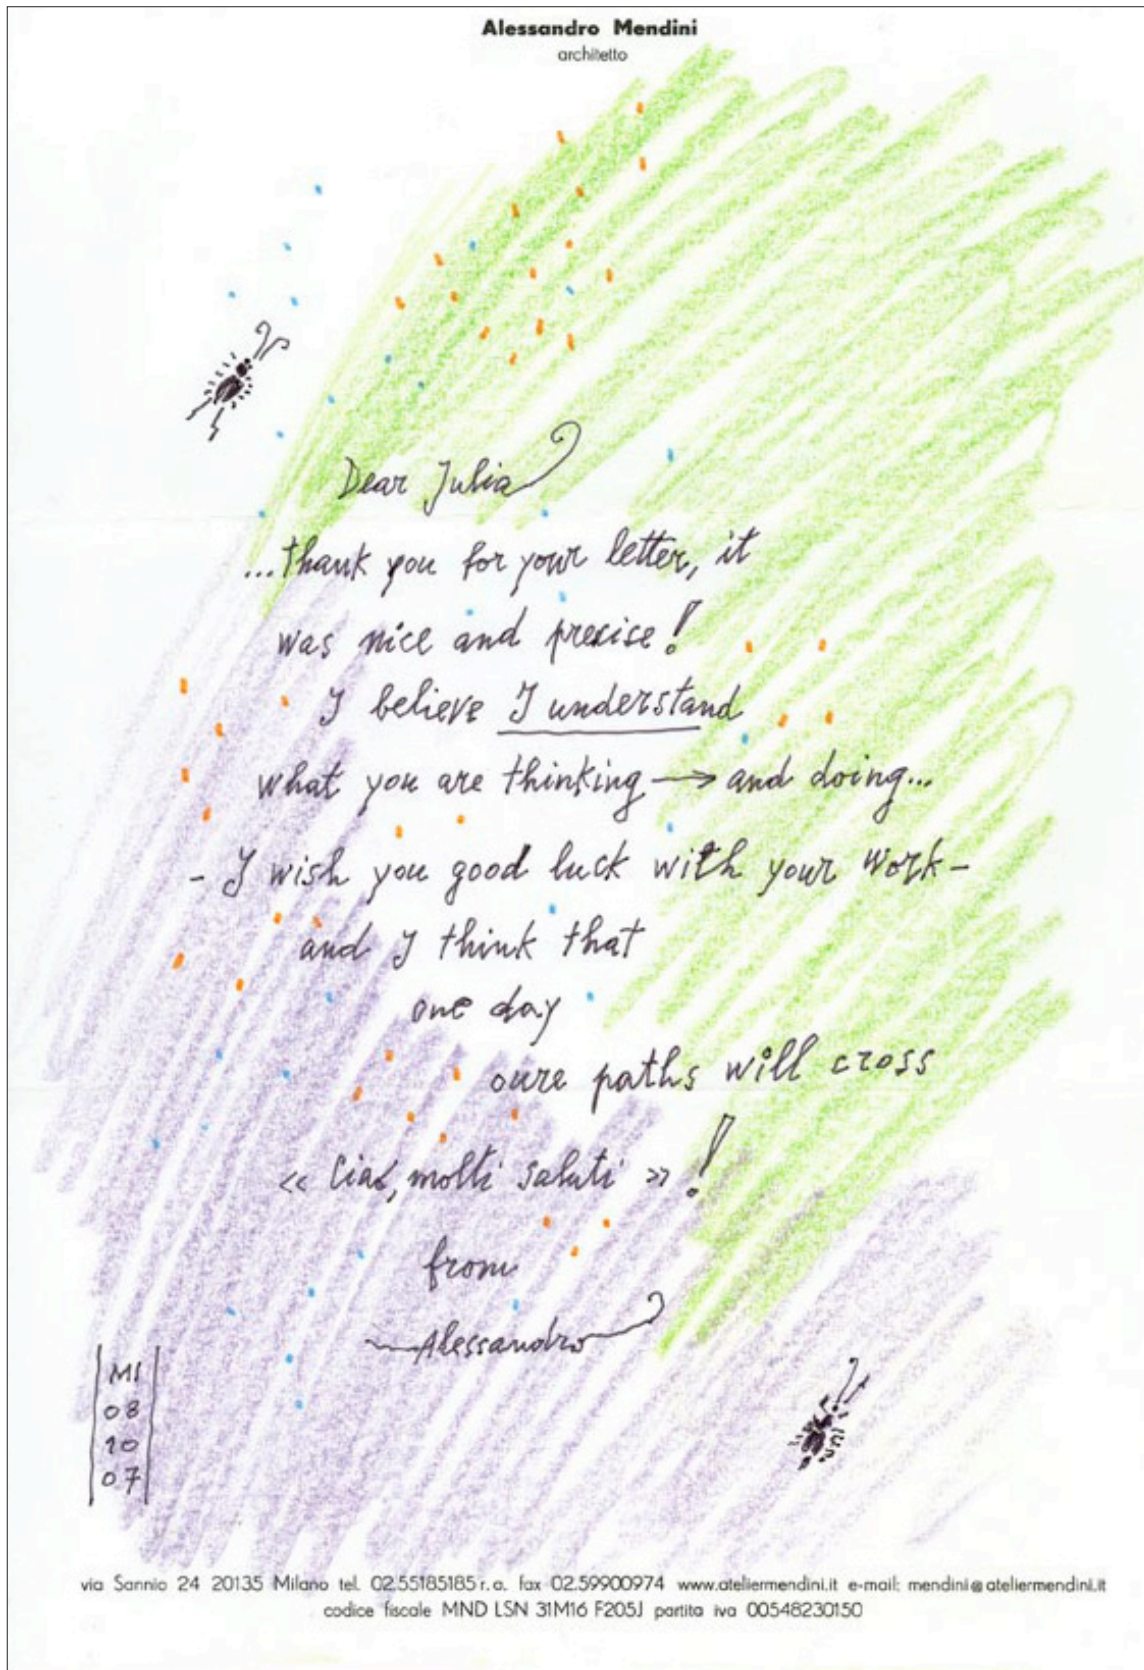 Alessandro Mendini
architetto
Dear Julia
...thank you for your letter, it
was nice and presise!
I believe I understand
what you are thinking → and doing...
- I wish you good luck with your work -
and I think that
one day
oure paths will cross
« Ciao, molti saluti »!
from
Alessandro
MI
08
10
07
via Sannio 24 20135 Milano tel. 02.55185185 r.a. fax 02.59900974 www.ateliermendini.it e-mail: mendini@ateliermendini.it
codice fiscale MND LSN 31M16 F205J partita iva 00548230150